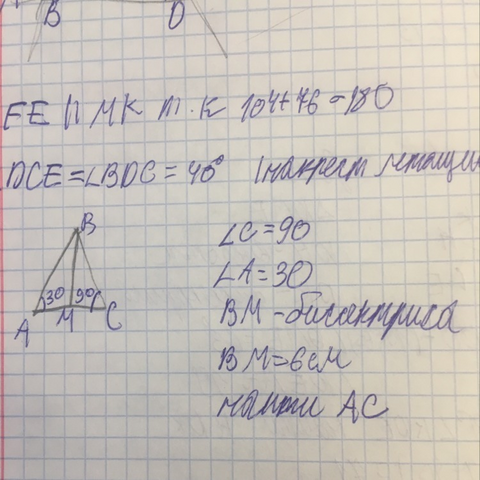 B D
EE || MK т.к 104+76=180
DCE=∠BDC=40° (накрест лежащи
B
30 90
A M C
∠C=90
∠A=30
BM-биссектриса
BM=6см
найти AC